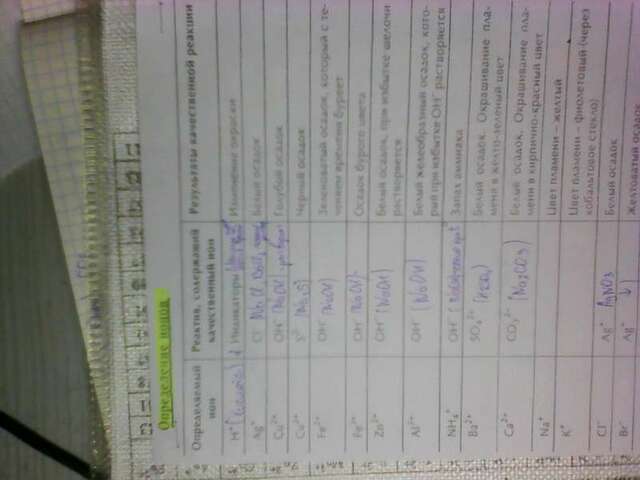 Определение ионов
Определяемый ион
Реактив, содержащий качественный ион
Результаты качественной реакции
H⁺ Индикаторы Изменение окраски
Ag⁺ Cl⁻ Белый осадок
Cu²⁺ OH⁻ (NaOH) Голубой осадок
Cu²⁺ S²⁻ (Na₂S) Черный осадок
Fe²⁺ OH⁻ (NaOH) Зеленоватый осадок, который с течением времени буреет
Fe³⁺ OH⁻ (NaOH) Осадок бурого цвета
Zn²⁺ OH⁻ (NaOH) Белый осадок, при избытке щелочи растворяется
Al³⁺ OH⁻ (NaOH) Белый желеобразный осадок, который при избытке OH⁻ растворяется
NH₄⁺ OH⁻ Запах аммиака
Ba²⁺ SO₄²⁻ Белый осадок. Окрашивание пламени в желто-зеленый цвет
Ca²⁺ CO₃²⁻ (Na₂CO₃) Белый осадок. Окрашивание пламени в кирпично-красный цвет
Na⁺ Цвет пламени – желтый
K⁺ Цвет пламени – фиолетовый (через кобальтовое стекло)
Cl⁻ Ag⁺ AgNO₃ Белый осадок
Br⁻ Ag⁺ Желтоватый осадок